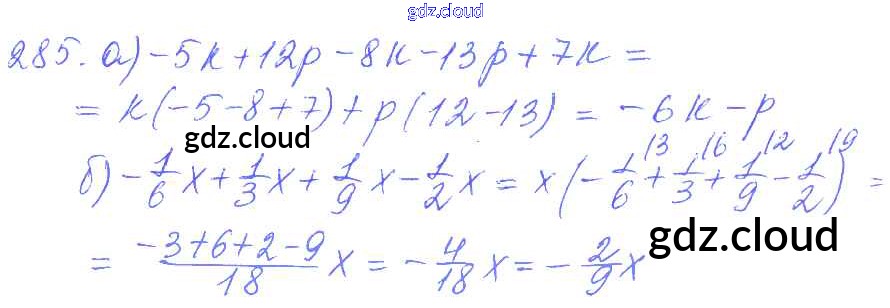 gdz.cloud
285. а) -5k + 12p - 8k - 13p + 7k =
= k(-5-8+7) + p(12-13) = -6k - p
gdz.cloud
б) -1/6 x + 1/3 x + 1/9 x - 1/2 x = x(-1/6 \3 + 1/3 \6 + 1/9 \2 - 1/2 \9) =
= (-3+6+2-9)/18 x = -4/18 x = -2/9 x
gdz.cloud